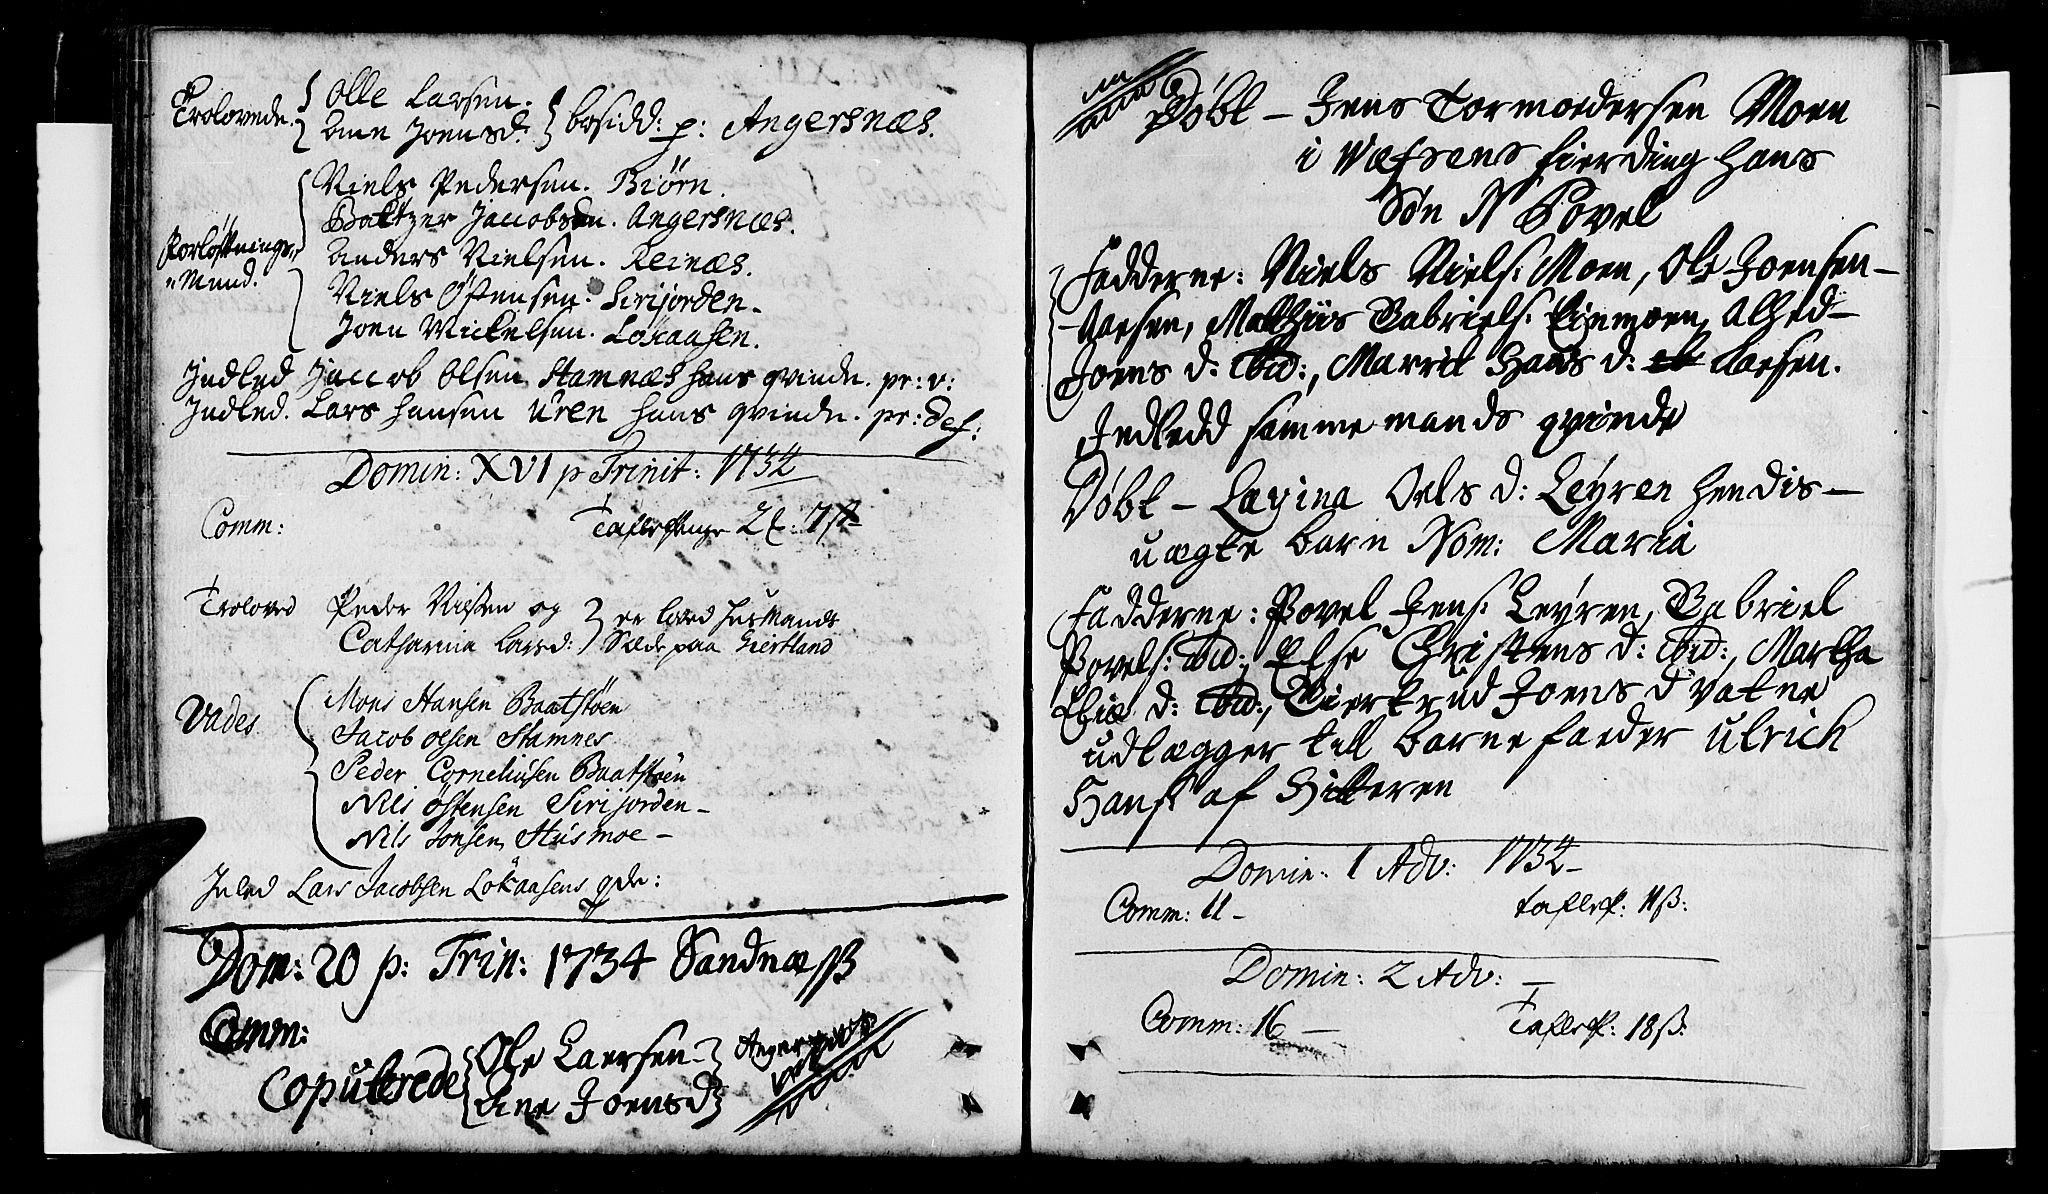 Trolovede. Olle Larsen. bosidd: p: Angersnæs.
Ane Joensd:
Niels Pedersen. Biørn.
Baltzer Jacobsen. Angersnæs.
Forløfnings Anders Nielsen. Reinæs.
Mænd. Niels Østensen. Sirijorden.
Joen Mickelsen. Løkaasen.
Indled Jacob Olsen Stamnæs hans qvinde. pr: v:
Indled. Lars Hansen Uren hans qvinde. pr: def:
Domin: XVI p Trinit: 1734
Comm: Taflepenge 2 7 ß
Troloved Peder Nielsen og er loved Husmands
Catharina Larsd: Sæde paa Giertland
Vades Mons Hansen Baatstøen
Jacob Olsen Stamnes
Peder Corneliusen Baatstøen
Nils Østensen Sirijorden
Nils Jonsen Husmoe
Inled Lars Jacobsen Løkaasens qde:
Dom: 20 p: Trin: 1734 Sandnæss
Comm:
Copulerede Ole Laersen
Ane Joensd
Døbt – Jens Tormoedersen Moen
i Wefsens fierding hans
Søn N Povel
Fadderne: Niels Niels: Moen, Ole Joensen
Aaesen, Mathiis Gabriels: Einmoen, Alhed
Joens d: ibid:, Marrit Hans d: Aaesen.
Indledd samme mands qvinde
Døbt – Lavina Oels d: Leyren hendis
uægte barn Nom: Maria
Fadderne: Povel Jens: Leyren, Gabriel
Povels: ibid:, Else Christens d: ibid:, Martha
Eliæ d: ibid:, Giertrud Joens d Vatne
udlægger till barne faeder Ulrich
Hans: af Hitteren
Domin: 1 Adv: 1734
Comm: 11 taflep: 11 ß:
Domin: 2 Adv:
Comm: 16 Taflep: 18 ß: